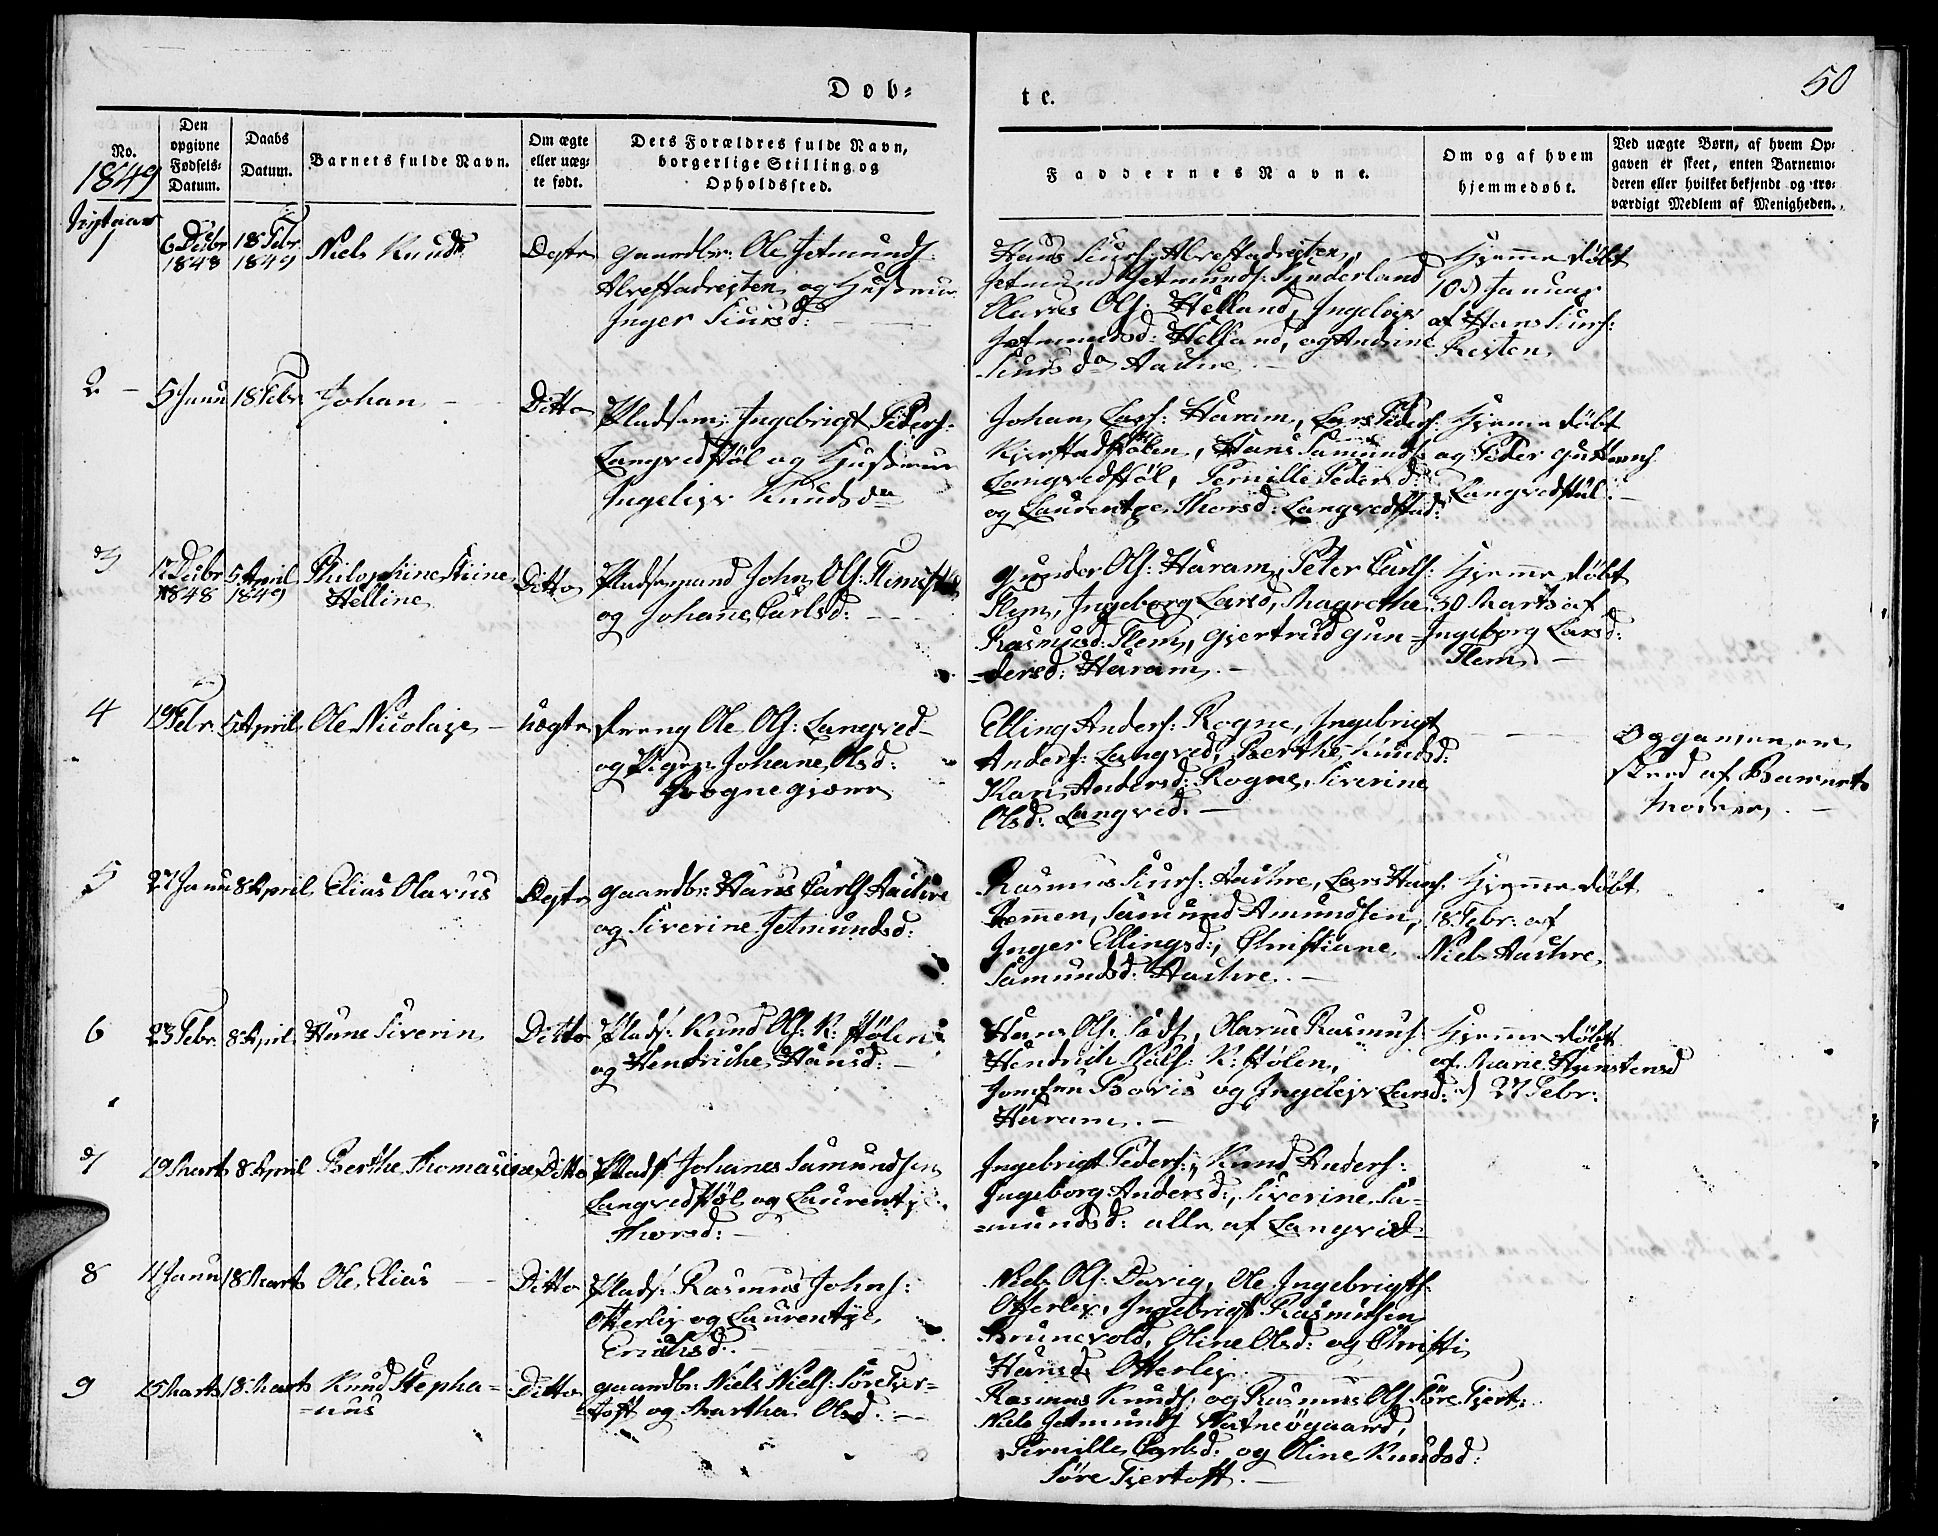 Døb=
te.
50
No.
1849
Den opgivne Fødsels-Datum.
Daabs Datum.
Barnets fulde Navn.
Om ægte eller uægte født.
Dets Forældres fulde Navn, borgerlige Stilling og Opholdssted.
Faddernes Navne.
Om og af hvem hjemmedøbt.
Ved uægte Børn, af hvem Opgaven er skeet, enten Barnemoderen eller hvilket bekjendt og troværdigt Medlem af Menigheden.
1
6 Decbr 1848
18 Febr. 1849
Niels Knud
Ægte
Gaardbr: Ole Jetmunds:
Alvestadreiten og Hustrue
Inger Siursd:
Hans Siurs: Alvestadreiten,
Jetmund Jetmunds: Synderland
Olaves Ols: Helland, Ingeleiv
Jetmundsd: Helland, og Andrine
Siursda Aakre. -
Hjemmedøbt
10d Januar
af Hans Siurs:
Reiten
2 -
5 Janu
18 Febr
Johan -
Ditto
Pladsem: Ingebrigt Peders:
Langvedstøl og Hustrue
Ingeleiv Knudsda
Johan Lars: Haram, Lars Peders:
Kjerstadstølen, Hans Samunds:
Langvedstøl, Pernille Pedersd:
og Laurentze Thorsd: Langvedstad:
Hjemmedøbt
af Peder Guttorms
Langvedstøl. -
3
12 Decbr 1848
5 April 1849
Philophine Stine
Helline
Ditto
Pladsemand John Ols: Flemstø
og Johane Carlsd: -
Gunder Ols: Haram, Peter Carls:
Flem, Ingeborg Larsd, Magrethe
Rasmusd: Flem, Gjertrud Gun=
=dersd: Haram -
Hjemmedøbt
30 Marts af
Ingeborg Larsd:
Flem -
4
19 Febr
5 April
Ole Nicolaye -
uægte
Dreng Ole Ols: Langved
og Pigen Johane Olsd:
Rognegjære
Elling Anders: Rogne, Ingebrigt
Anders: Langved, Berthe Knudsd:
Kari Andersd: Rogne, Siverine
Olsd: Langved. -
Opgaven er
skeed af Barnets
Moder. -
5
27 Janu
8 April
Elias Olavus
Ægte
Gaardbr: Hans Carls Aakre
og Siverine Jetmundsd:
Rasmus Siurs: Aakre, Lars Hans
Rømmen, Samund Amundsen,
Inger Ellingsd:, Christiane
Samundsd: Aakre. -
Hjemmedøbt
18 Febr: af
Niels Aakre
6
23 Febr
8 April
Hans Siverin
Ditto
Plads: Knud Ols: K: stølen
og Hendrikke Hansd: -
Hans Ols: Olavus Rasmus:
Hendrich K: stølen,
Jomfru Boris og Ingeleiv Larsd:
Haram. -
Hjemmedøbt
af Marie Thorstensd
d 27 Febr:
7
19 Marts
8 April
Berthe Thomasine
Ditto
Plads Johanes Samundsen
Langvedstøl og Laurentze
Thorsd: -
Ingebrigt Peders:, Knud Anders:
Ingeborg Andersd:, Siverine Sa=
=mundsd: alle af Langved
8
11 Janu
18 Marts
Ole Elias -
Ditto
Plads: Rasmus Johns:
Otterlei og Laurentze
Erichsd: -
Niels Ols: Davig, Ole Ingebrigts:
Otterlei, Ingebrigt Rasmusen
Brunevold, Oline Olsd: og Christi
Hansd: Otterlei
9
15 Marts
18 Marts
Knud Stepha=
=nus
Ditto
Gaardbr: Niels Niels: Søre Fjer=
=toft og Martha Olsd: -
Rasmus Knuds: og Rasmus Ols: Søre Fjert:
Niels Jetmunds Vatneøgaard,
Pernille Carlsd: og Oline Knudsd:
Søre Fjertoft. -